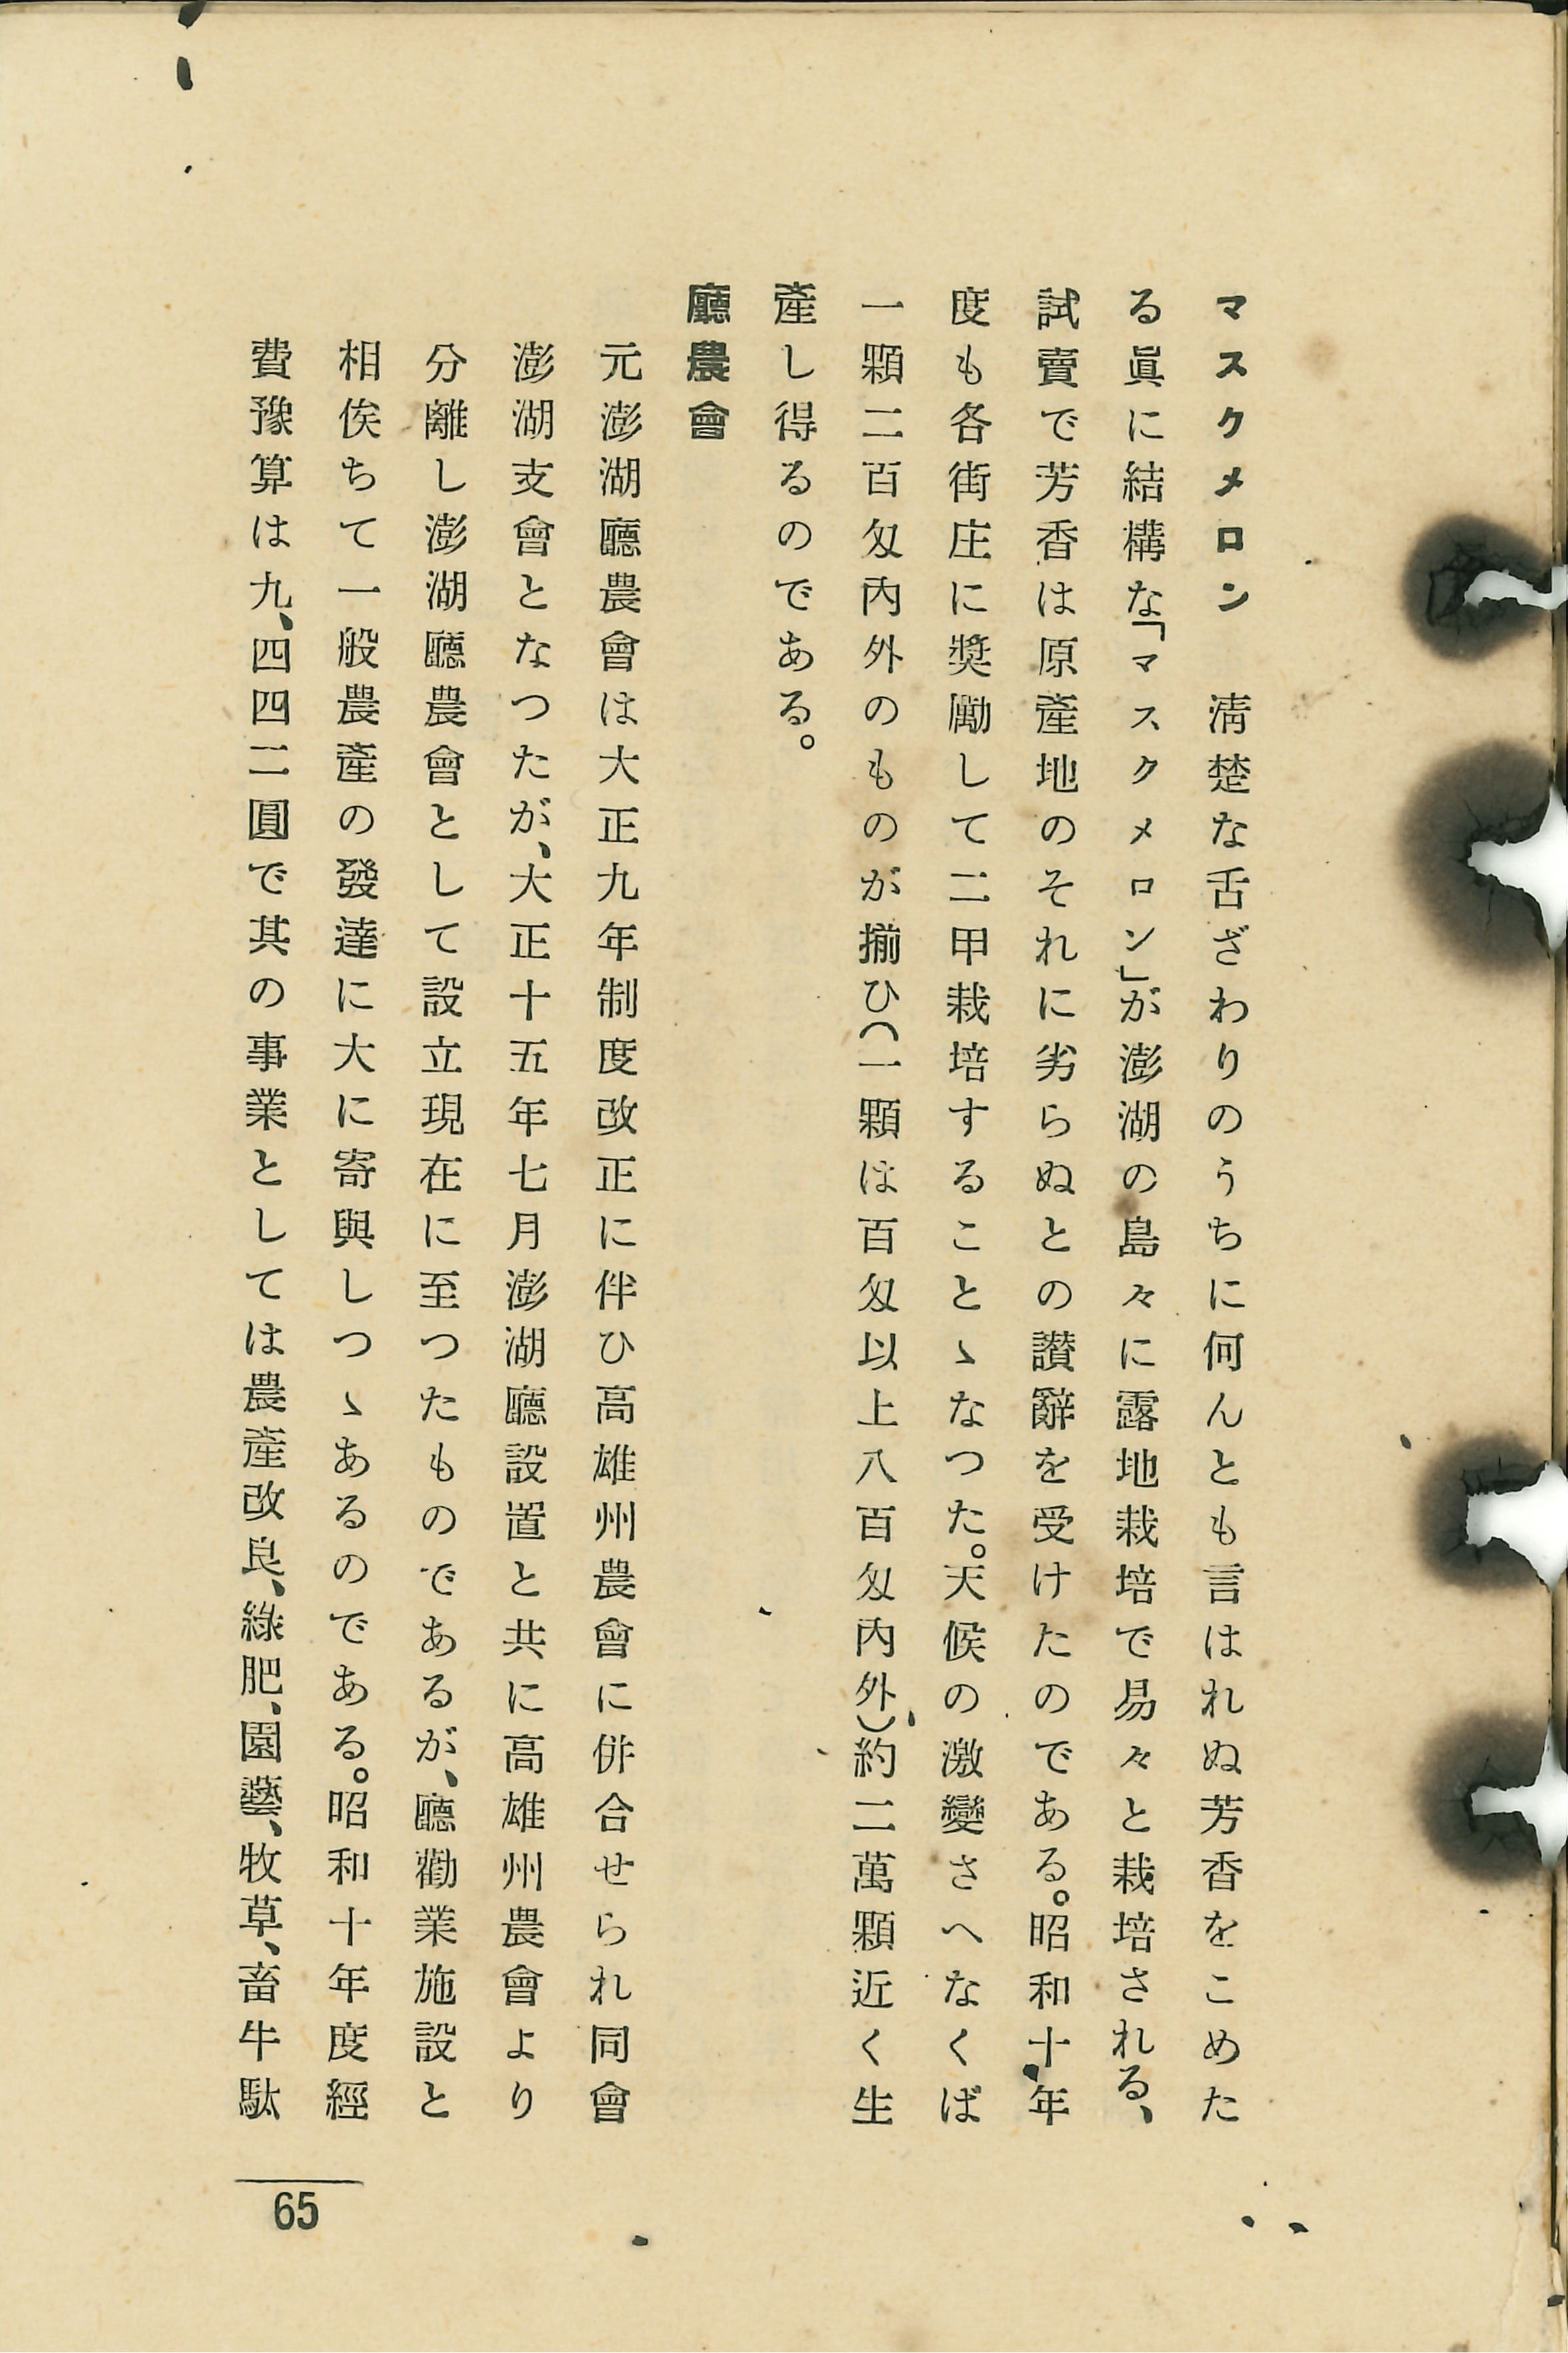 マスクメロン　淸楚な舌ざわりのうちに何んとも言はれぬ芳香をこめた
る眞に結構な「マスクメロン」が澎湖の島々に露地栽培で易々と栽培される、
試賣で芳香は原產地のそれに劣らぬとの讃辭を受けたのである。昭和十年
度も各街庄に奬勵して二甲栽培することゝなつた。天候の激變さへなくば
一顆二百匁內外のものが揃ひ（一顆は百匁以上八百匁內外）約二萬顆近く生
產し得るのである。
廳農會
元澎湖廳農會は大正九年制度改正に伴ひ高雄州農會に併合せられ同會
澎湖支會となつたが、大正十五年七月澎湖廳設置と共に高雄州農會より
分離し澎湖廳農會として設立現在に至つたものであるが、廳勸業施設と
相俟ちて一般農產の發達に大に寄與しつゝあるのである。昭和十年度經
費豫算は九、四四二圓で其の事業としては農產改良、綠肥、園藝、牧草、畜牛駄
65